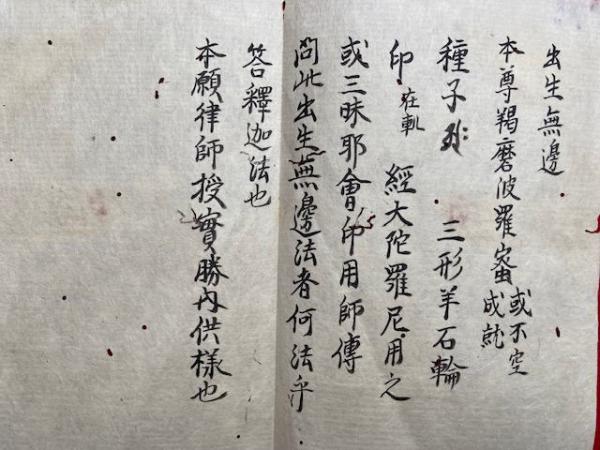 出生無邊
本尊羯磨波羅蜜 或不空成就
種子 三形羊石輪
印 在軌 經大陀羅尼用之
或三昧耶會印用師傳
問此出生無邊法者何法乎
答釋迦法也
本願律師授實勝内供様也